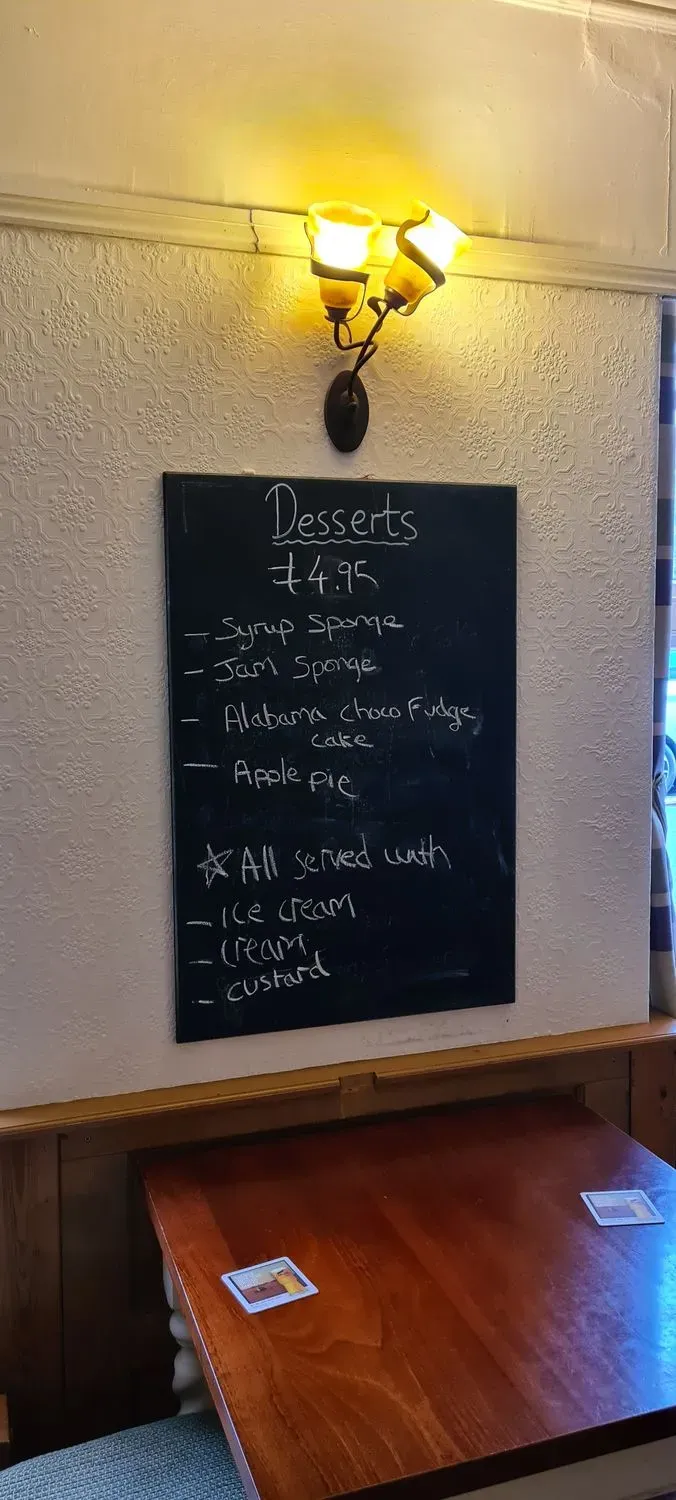 Desserts
£4.95
- Syrup Sponge
- Jam Sponge
- Alabama choco Fudge
cake
- Apple pie
☆ All served with
- Ice cream
- cream
- custard